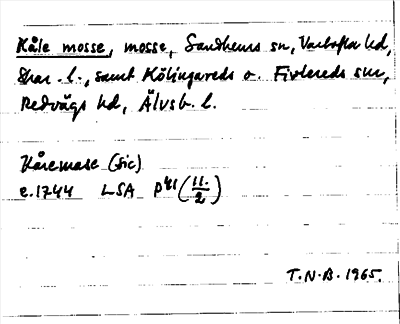 Kåle mosse, mosse, Sandhems sn, Vartofta hd,
Skar. l., samt Kölingareds o. Fivlereds snr,
Redvägs hd, Älvsb. l.
Kåremase (sic)
c. 1744 LSA P41 (11./2)
T.N.B. 1965.